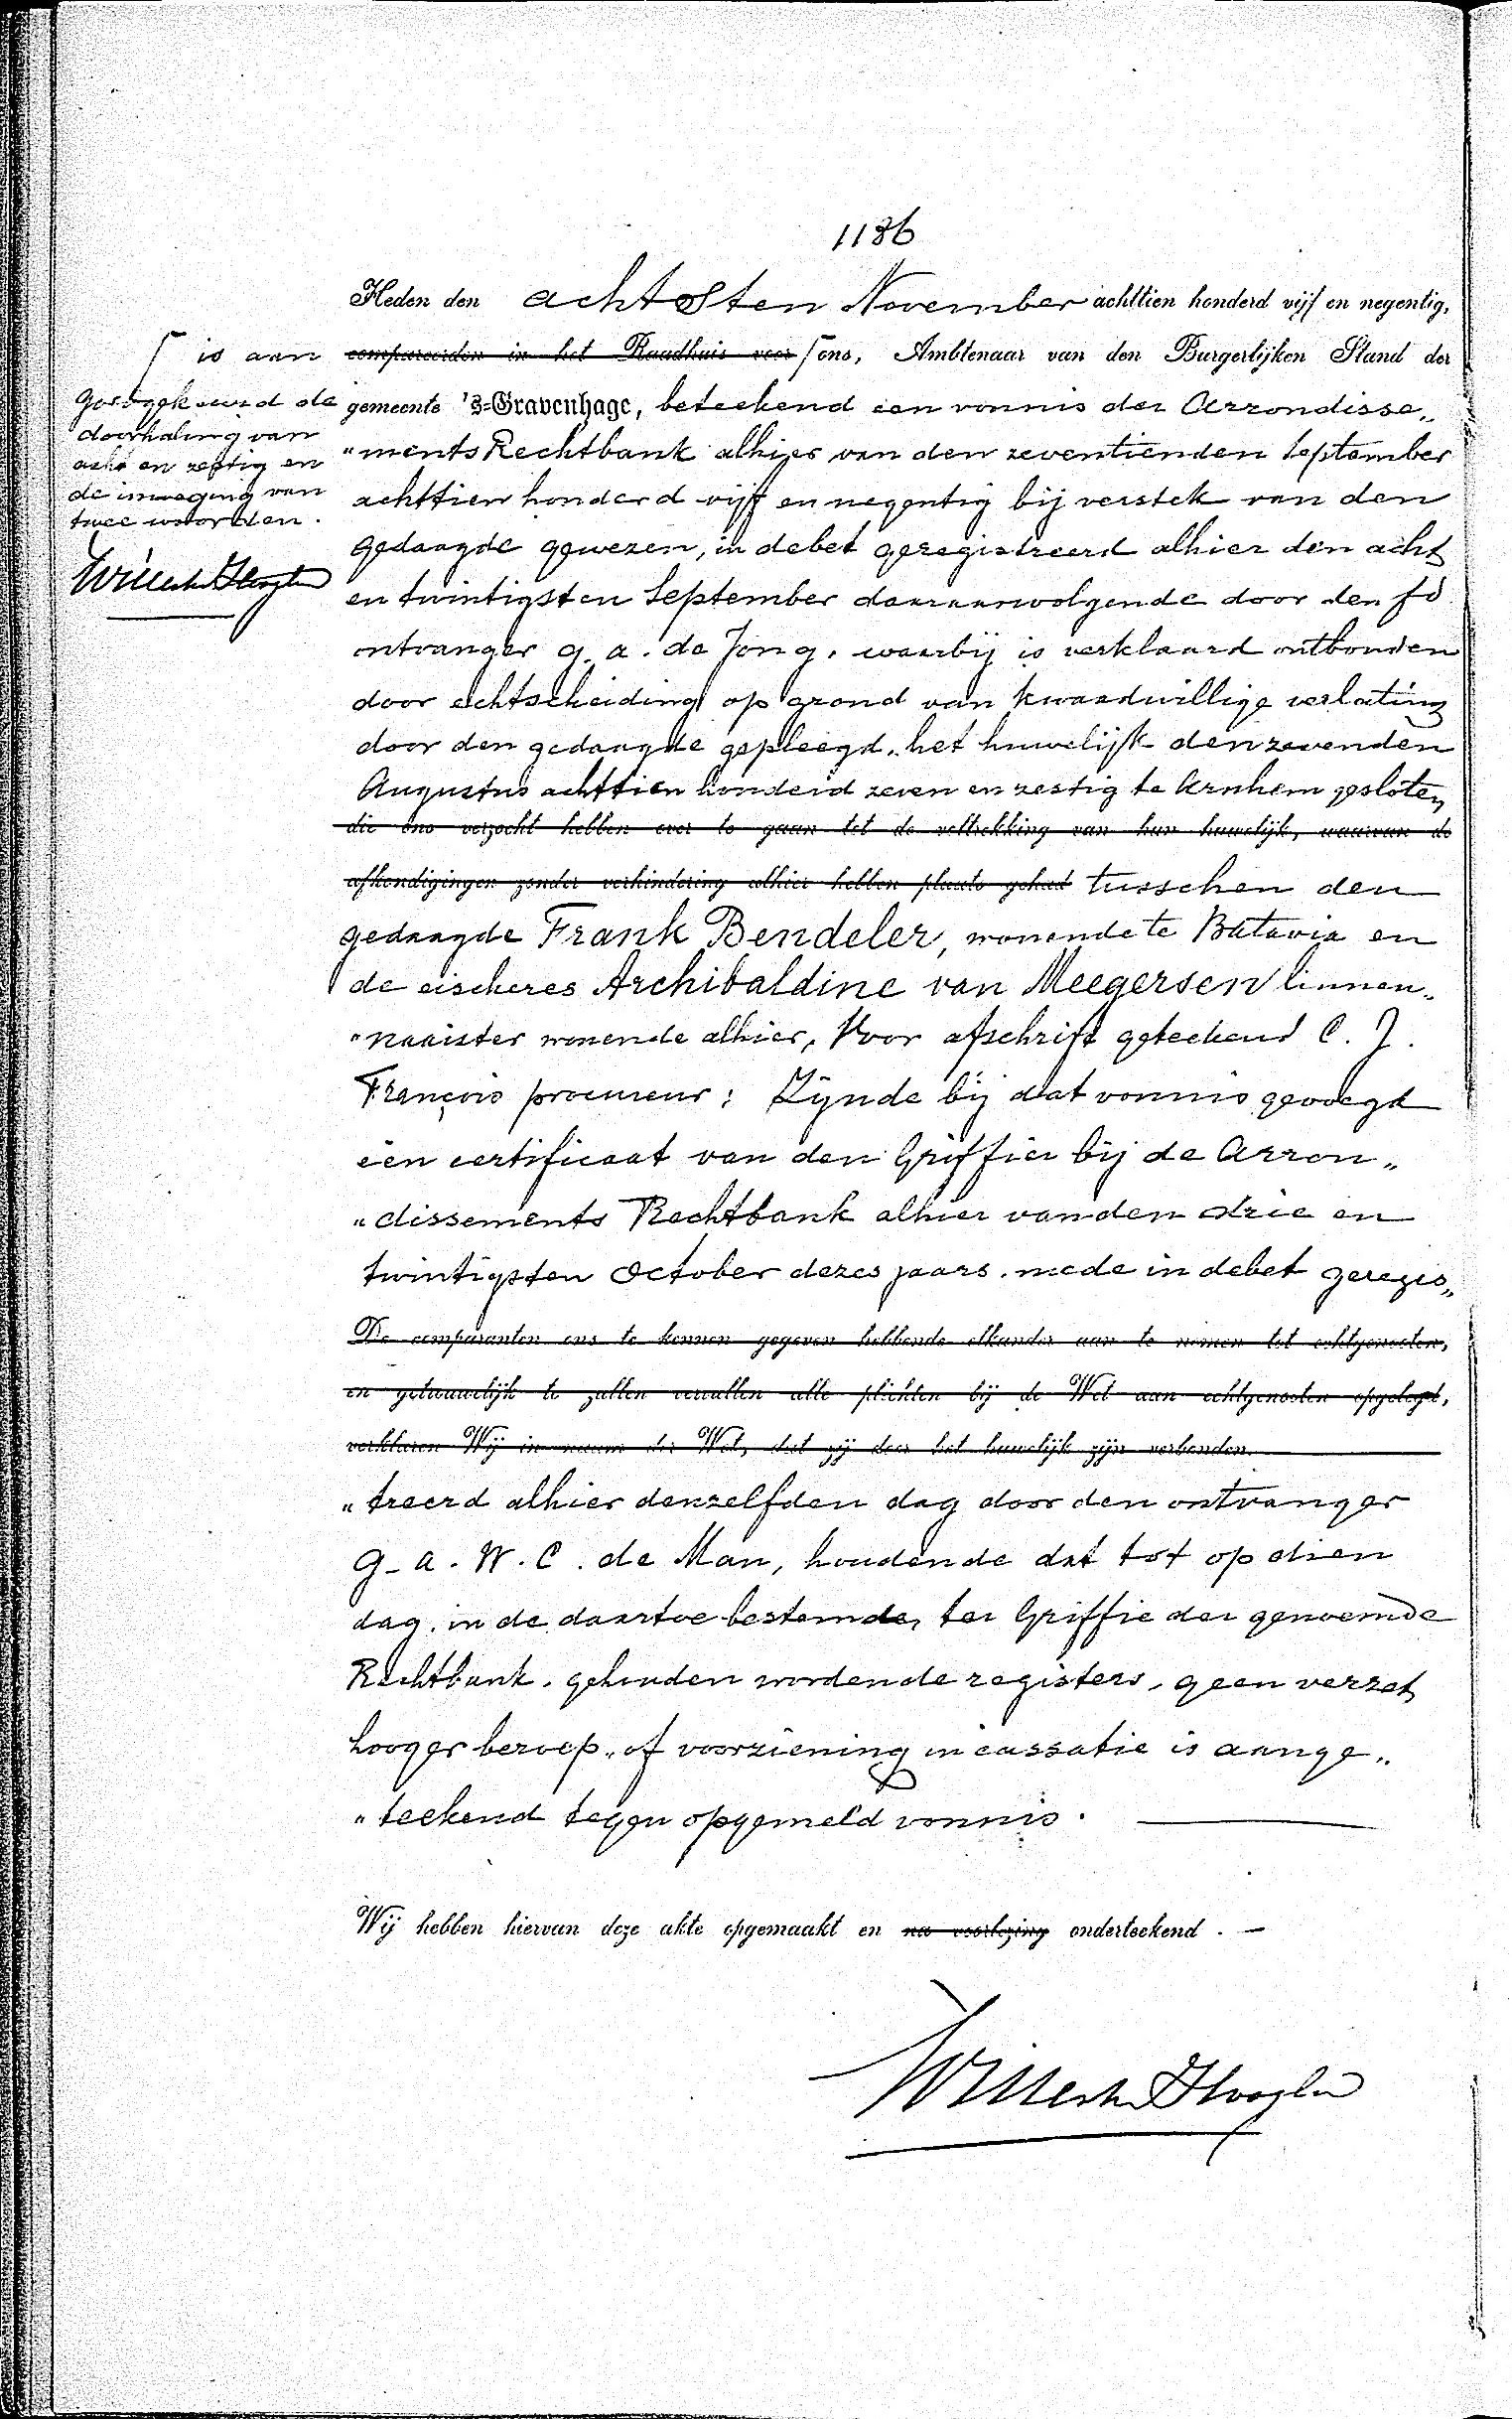 1186
Heden den achtsten November achttien honderd vijf en negentig,
⌠ is aan
compareerden in het Raadhuis voor ⌠ ons, Ambtenaar van den Burgerlijken Stand der
Goedgekeurd de
doorhaling van
acht en zestig en
de invoeging van
twee woorden.
gemeente 's-Gravenhage, beteekend een vonnis der Arrondisse„
"ments Rechtbank alhier van den zeventienden September
achttien honderd vijf en negentig bij verstek van den
gedaagde gewezen, in debet geregistreerd alhier den acht
en twintigsten September daaraanvolgende door den fd
ontvanger G. A. de Jong, waarbij is verklaard ontbonden
door echtscheiding op grond van kwaadwillige verlating
door den gedaagde gepleegd, het huwelijk den zevenden
Augustus achttien honderd zeven en zestig te Arnhem gesloten
die ons verzocht hebben over te gaan tot de voltrekking van hun huwelijk, waarvan de
afkondigingen zonder verhindering alhier hebben plaats gehad tusschen den
gedaagde Frank Bendeler, wonende te Batavia en
de eischeres Archibaldine van Meegersen linnen„
"naaister wonende alhier, Voor afschrift geteekend C. J.
François procureur; Zijnde bij dat vonnis gevoegd
een certificaat van den Griffier bij de Arron„
"dissements Rechtbank alhier van den drie en
twintigsten October dezes jaars, mede in debet geregis„
De comparanten ons te kennen gegeven hebbende elkander aan te nemen tot echtgenooten,
en getrouwelijk te zullen vervullen alle plichten bij de Wet aan echtgenooten opgelegd,
verklaren Wij in naam der Wet, dat zij door het huwelijk zijn verbonden.
"treerd alhier denzelfden dag door den ontvanger
G. A. W. C. de Man, houdende dat tot op dien
dag, in de daartoe bestemde, ter Griffie der genoemde
Rechtbank, gehouden wordende registers, geen verzet
hooger beroep, of voorziening in cassatie is aange„
"teekend tegen opgemeld vonnis.
Wij hebben hiervan deze akte opgemaakt en na voorlezing onderteekend.